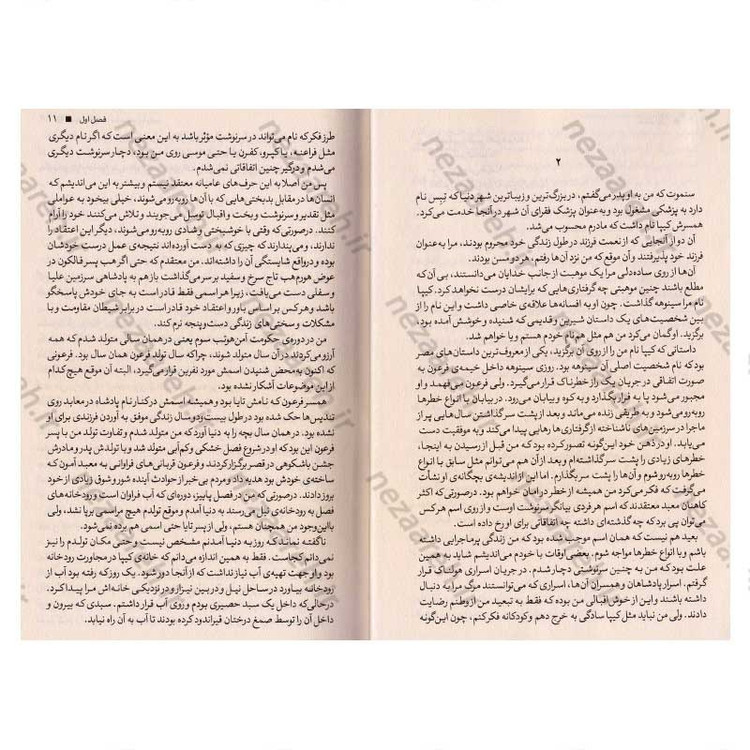 ۲
سنموت که من به او پدر می‌گفتم، در بزرگ‌ترین و زیباترین شهر دنیا که تِبِس نام
دارد به پزشکی مشغول بود و به‌عنوان پزشک فقرای آن شهر در آنجا خدمت می‌کرد.
همسرش کیپا نام داشت که مادرم محسوب می‌شد.
آن دو از آنجایی که از نعمت فرزند در طول زندگی خود محروم بودند، مرا به‌عنوان
فرزند خود پذیرفتند و آن موقع که من نزد آن‌ها رفتم، هر دو مسن بودند.
آن‌ها از روی ساده‌دلی مرا یک موهبت از جانب خدایان می‌دانستند، بی آن‌که
مطلع باشند چنین موهبتی چه گرفتاری‌هایی که برایشان درست نخواهد کرد. کیپا
نام مرا سینوهه گذاشت. چون او به افسانه‌ها علاقه‌ی خاصی داشت و این نام را از
بین شخصیت‌های یک داستان شیرین و قدیمی که شنیده و خوشش آمده بود،
برگزید. او گمان می‌کرد من هم مثل هم نام خودم هستم و یا خواهم شد.
داستانی که کیپا نام من را از روی آن برگزید، یکی از معروف‌ترین داستان‌های مصر
بود که نام شخصیت اصلی آن سینوهه بود. روزی سینوهه داخل خیمه‌ی فرعون به
صورت اتفاقی در جریان یک راز خطرناک قرار می‌گیرد. ولی فرعون می‌فهمد و او
مجبور می‌شود پا به فرار بگذارد و به کوه و بیابان می‌رود. در بیابان با انواع خطرها
روبه‌رو می‌شود و به طریقی زنده می‌ماند و بعد از پشت سر گذاشتن سال‌هایی پر از
ماجرا در سرزمین‌های ناشناخته از گرفتاری‌ها رهایی پیدا می‌کند و به موفقیت دست
می‌یابد. او در ذهن خود این‌گونه تصور کرده بود که من قبل از رسیدن به اینجا،
خطرهای زیادی را پشت سر گذاشته‌ام و بعد از آن هم می‌توانم مثل سابق با انواع
خطرها روبه‌رو شوم و آن‌ها را پشت سر بگذارم. اما این از اندیشه‌ی بچگانه‌ی او نشأت
می‌گرفت که فکر می‌کرد من همیشه از خطر در امان خواهم بود. در صورتی‌که اکثر
کاهنان معبد معتقدند که اسم هر فردی بیانگر سرنوشت اوست و از روی اسم هر کس
می‌توان پی برد که چه گذشته‌ای داشته چه اتفاقاتی برای او رخ داده است.
بعید هم نیست که همان اسم موجب شده بود که من به زندگی پرماجرایی داشته
باشم و با انواع خطرها مواجه شوم. بعضی اوقات با خودم می‌اندیشم شاید به همین
علت بود که من به چنین سرنوشتی دچار شدم. در جریان اسراری هولناک قرار
گرفتم. اسرار پادشاهان و همسران آن‌ها، اسراری که می‌توانستند مرگ مرا به دنبال
داشته باشند و این از خوش‌اقبالی من بوده که فقط به تبعید من از وطنم رضایت
دادند. ولی من نباید مثل کیپا سادگی به خرج دهم و کودکانه فکر کنم، چون این‌گونه
فصل اول ■ ۱۱
طرز فکر که نام می‌تواند در سرنوشت مؤثر باشد به این معنی است که اگر نام دیگری
مثل فراعنه، یا کپرو، کفرن یا حتی موسی روی من بود، دچار سرنوشت دیگری
می‌شدم و درگیر چنین اتفاقاتی نمی‌شدم.
پس من اصلاً به این حرف‌های عامیانه معتقد نیستم و بیشتر به این می‌اندیشم که
انسان‌ها در مقابل بدبختی‌هایی که با آن‌ها روبه‌رو می‌شوند، خیلی بیخود به عواملی
مثل تقدیر و سرنوشت و بخت و اقبال توسل می‌جویند و تلاش می‌کنند خود را آرام
کنند. در صورتی‌که وقتی با خوشبختی و شادی روبه‌رو می‌شوند، دیگر این اعتقاد را
ندارند، و می‌پندارند که چیزی که به دست آورده‌اند نتیجه‌ی عمل درست خودشان
بوده و در واقع شایستگی آن را داشته‌اند. من معتقدم که حتی اگر هم پسر فالکون در
عوض هورم‌هب تاج سرخ و سفید بر سر می‌گذاشت باز هم به پادشاهی سرزمین علیا
و سفلی دست می‌یافت، زیرا هر اسمی فقط قادر است به جای خودش پاسخگو
باشد و هر کس بر اساس باور و اعتقاد خود قادر است در برابر شیطان مقاومت و با
مشکلات و سختی‌های زندگی دست‌وپنجه نرم کند.
من در دوره‌ی حکومت آمن‌هوتپ سوم یعنی در همان سالی متولد شدم که همه
آرزو می‌کردند در آن سال متولد شوند، چراکه سال تولد فرعون همان سال بود. فرعونی
که اکنون به‌محض شنیدن اسمش مورد نفرین قرار می‌گیرد، البته آن موقع هیچ کدام
از این موضوعات آشکار نشده بود.
همسر فرعون که نامش تایا بود و همیشه اسمش در کنار نام پادشاه در معابد روی
تندیس‌ها حک شده بود در طول بیست‌ودو سال زندگی موفق به آوردن فرزندی برای او
نشده بود. در همان سال بچه را به دنیا آورد که من متولد شدم و تفاوت تولد من با پسر
فرعون این بود که او در شروع فصل خشکی و کم‌آبی متولد شد و با تولدش پدر و مادرش
جشن باشکوهی در قصر برگزار کردند و فرعون قربانی‌های فراوانی به معبد آمون که
ساخته‌ی خودش بود هدیه داد و مردم بی‌خبر از حوادث آینده شور و شوق زیادی از خود
بروز دادند. در صورتی‌که من در فصل پاییز، دوره‌ای که آب فراوان است و رودخانه‌های
فصل به رودخانه‌ی نیل می‌رسند به دنیا آمدم و موقع تولدم هیچ مراسمی برپا نشد، ولی
بااین‌وجود من همچنان هستم، ولی از پسر تایا حتی اسمی هم برده نمی‌شود.
ناگفته نماند که روز به دنیا آمدنم مشخص نیست و حتی مکان تولدم را نیز
نمی‌دانم کجاست. فقط به همین اندازه می‌دانم که خانه‌ی کیپا در مجاورت رودخانه
بود و او جهت تهیه‌ی آب نیاز نداشت که از آنجا دور شود. یک روز که رفته بود آب از
رودخانه بیاورد در ساحل نیل و در بین نیزار و در نزدیکی خانه‌اش مرا پیدا کرد.
در حالی‌که داخل یک سبد حصیری بودم و روی آب قرار داشتم. سبدی که بیرون و
داخل آن را توسط صمغ درختان قیراندود کرده بودند تا آب به آن راه نیابد.
nezaareh.ir